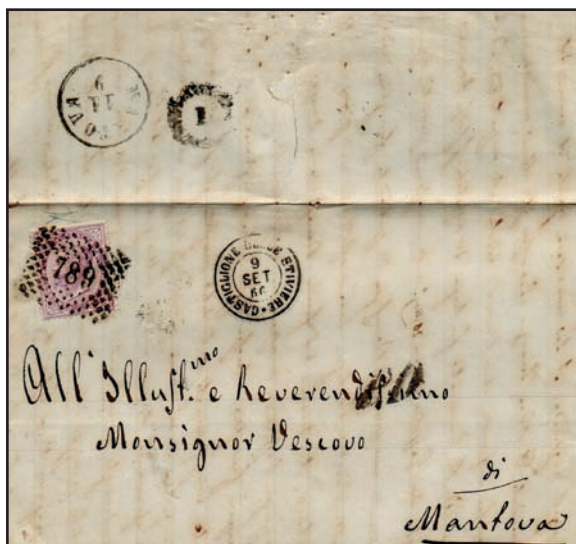 MANTOVA
11
9
1
789
CASTIGLIONE DELLE STIVIERE
9
SET
66
All' Illust.mo e Reverendissimo
Monsignor Vescovo
di
Mantova